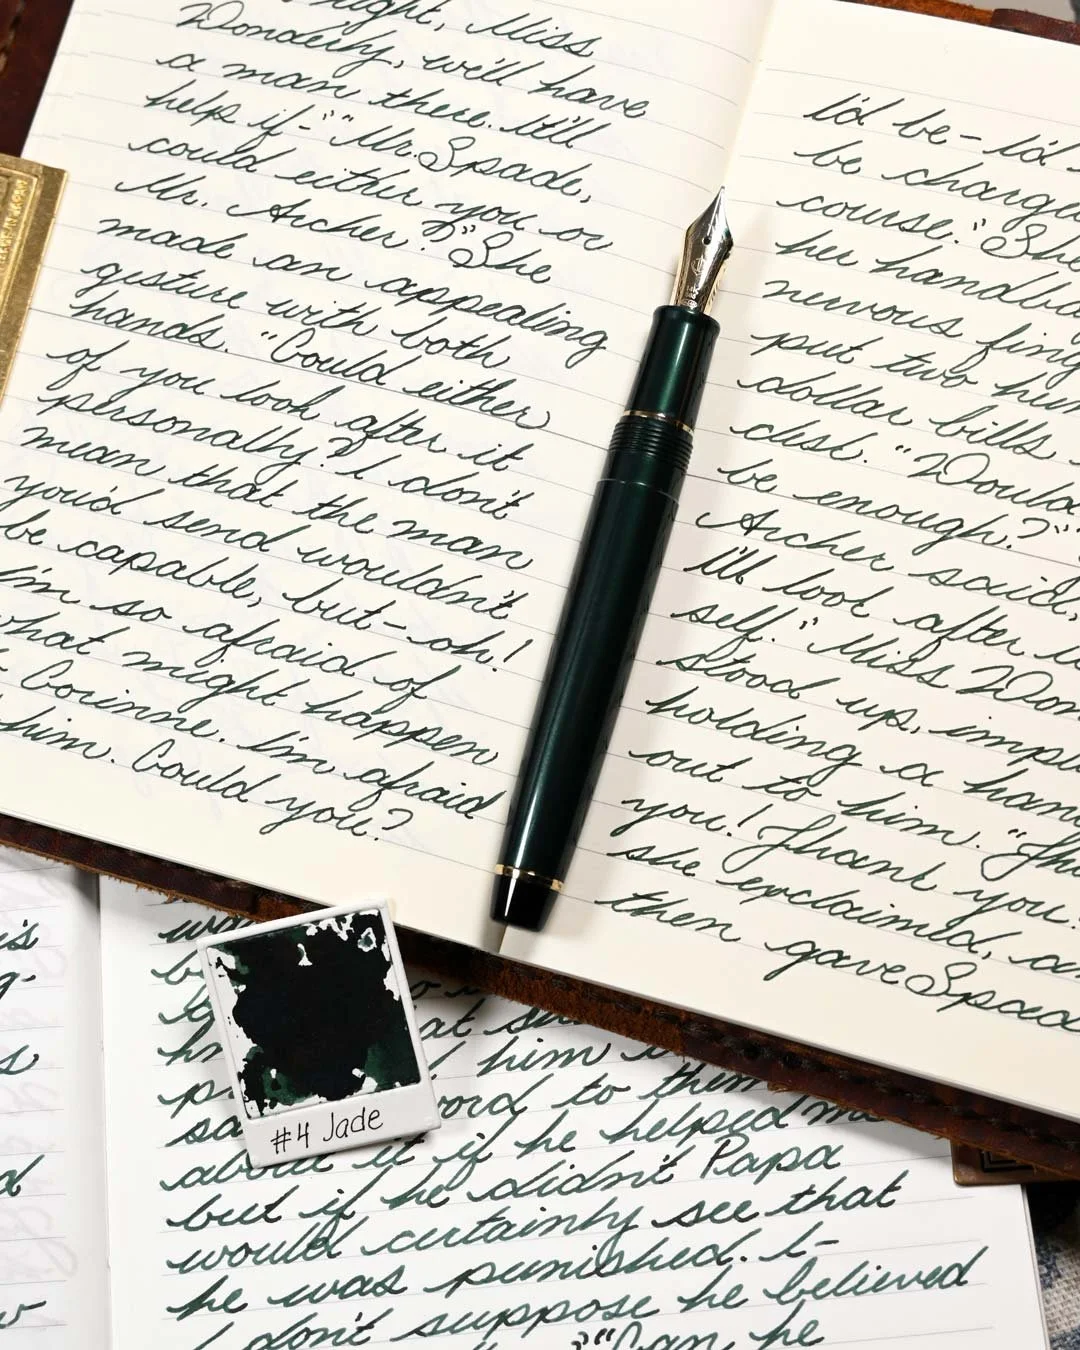 night, Miss
Wonderly, we'll have
a man there. It'll
help if-" "Mr. Spade,
could either you or
Mr. Archer?" She
made an appealing
gesture with both
hands. "Could either
of you look after it
personally? I don't
mean that the man
you'd send wouldn't
be capable, but-oh!
I'm so afraid of
what might happen
Corinne. I'm afraid
him. Could you?"
I'd be- I'd
be charge
course." She
her handba
nervous fing
put two hun
dollar bills
desk. "Would
be enough?"
Archer said,
I'll look after
self." Miss Won
stood up, impul
holding a hand
out to him. "Tha
you! Thank you!
she exclaimed, an
then gave Spade
MADE IN JAPAN
#4 Jade
at
him
word to them
about it if he helped me
but if he didn't Papa
would certainly see that
he was punished. I-
I don't suppose he believed
"Can he